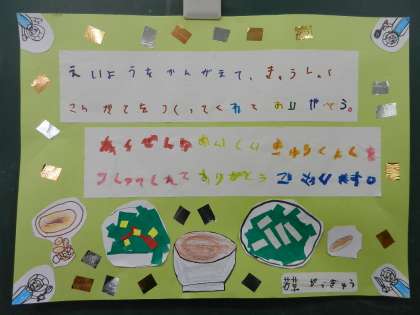 えいようをかんがえて、きゅうしょく
こんだてをつくってくれて ありがとう。
あんぜんな おいしい きゅうしょくを
つくってくれて ありがとう ございます。
がっきゅう